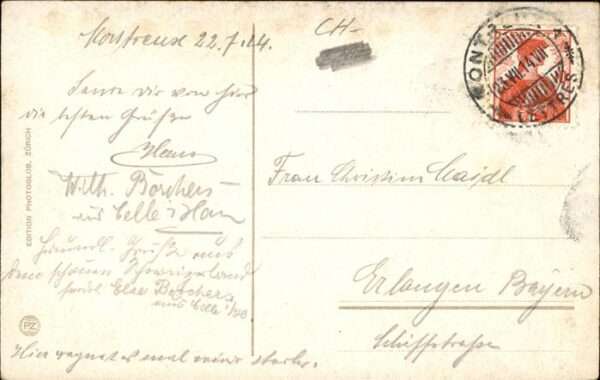 Montreux 22.7.14.
CH-
Sende dir von hier
die besten Grüße
Hans
Wilh. Borchers
aus Celle i/Han
Freundl. Grüße aus
dem schönen Schweizerland
Else Borchers
aus Celle i/H
Hier regnet es mal stark.
Frau Christine
Erlangen Bayern
Schiffstraße
MONTREUX
VII.14
LETTRES
EDITION PHOTOGLOB, ZÜRICH
PZ